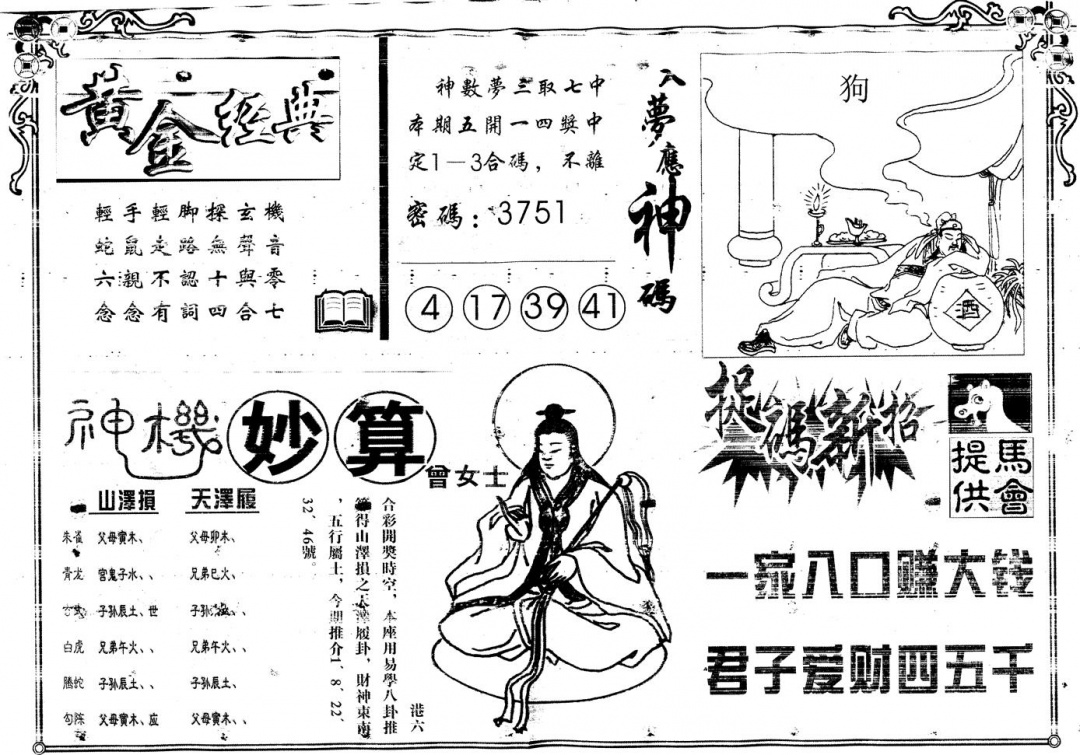 黄金经典
輕手輕脚探玄機
蛇鼠走路無聲音
六親不認十與零
念念有詞四合七
神數夢三取七中
本期五開一四獎中
定1—3合碼，不離
密碼：3751
4 17 39 41
入夢應神碼
狗
酒
神機妙算
曾女士
山澤損 天澤履
朱雀 父母寅木、 父母卯木、
青龙 官鬼子水、、 兄弟巳火、
子孙辰土、世 子孙
白虎 兄弟午火、、 兄弟午火、
螣蛇 子孙辰土、、 子孙辰土、
勾陈 父母寅木、应 父母寅木、、
港六
合彩開獎時空，本座用易學八卦推
算得山澤損之天澤履卦，財神東南
，五行屬土，今期推介1、8、22、
32、46號。
捉碼新招
馬會提供
一家八口赚大钱
君子爱财四五千